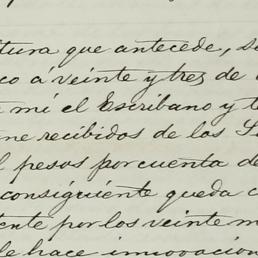 tura que antecede, s
co á veinte y tres de
mi el Escribano y t
ne recibidos de los S
l pesos por cuenta de
consiguiente queda c
tente por los veinte m
le hace innovacion